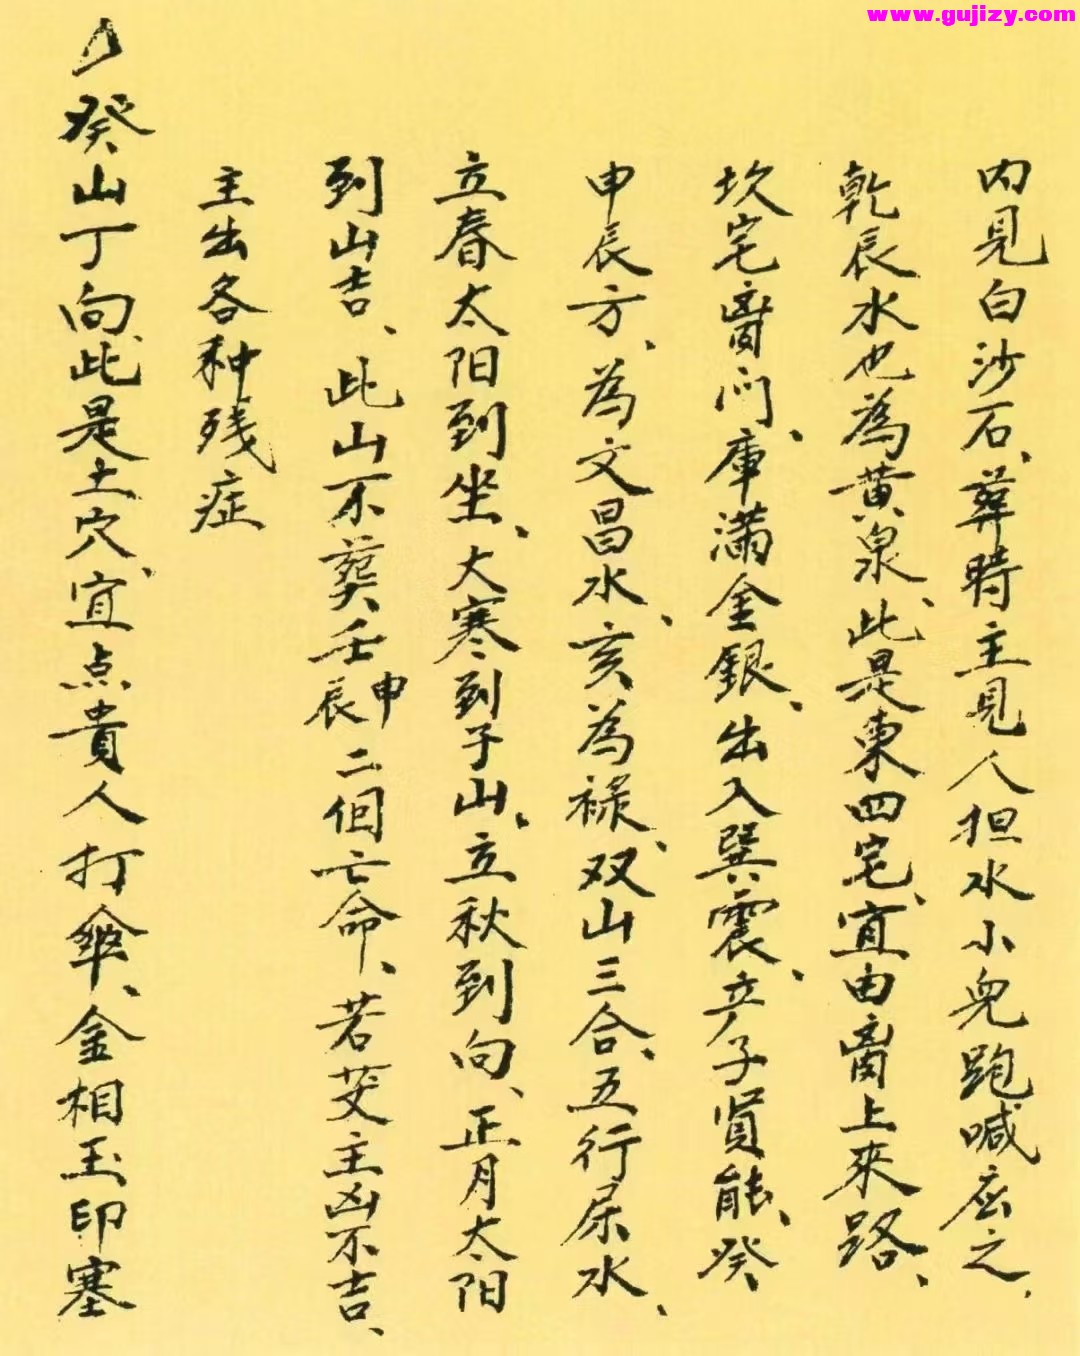 www.gujizy.com
内見白沙石、葬時主見人担水小兒跑喊应之、
乾辰水也為黄泉、此是東四宅、宜由离上來路、
坎宅离门、庫滿金銀、出入巽震、产子賢能、癸
申辰方、為文昌水、亥為禄、双山三合、五行属水、
立春太阳到坐、大寒到子山、立秋到向、正月太阳
到山吉、此山不葬壬申辰二個亡命、若葬主凶不吉、
主出各种残症
癸山丁向、此是土穴、宜点貴人打傘、金相玉印塞